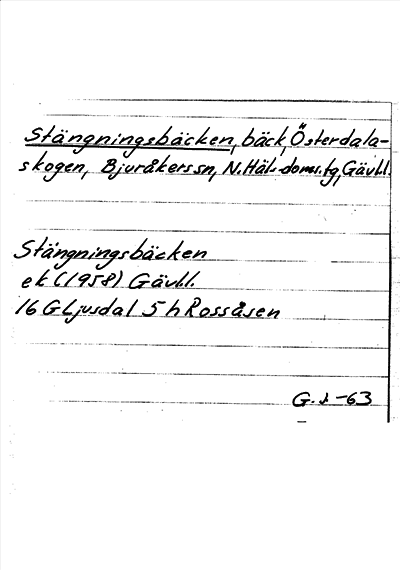 Stängningsbäcken, bäck, Österdala-
skogen, Bjuråkers sn, N. Häl. doms.fg, Gävl.l.
Stängningsbäcken
ek (1958) Gävl.l.
16 G Ljusdal 5 h Rossåsen
G. -63